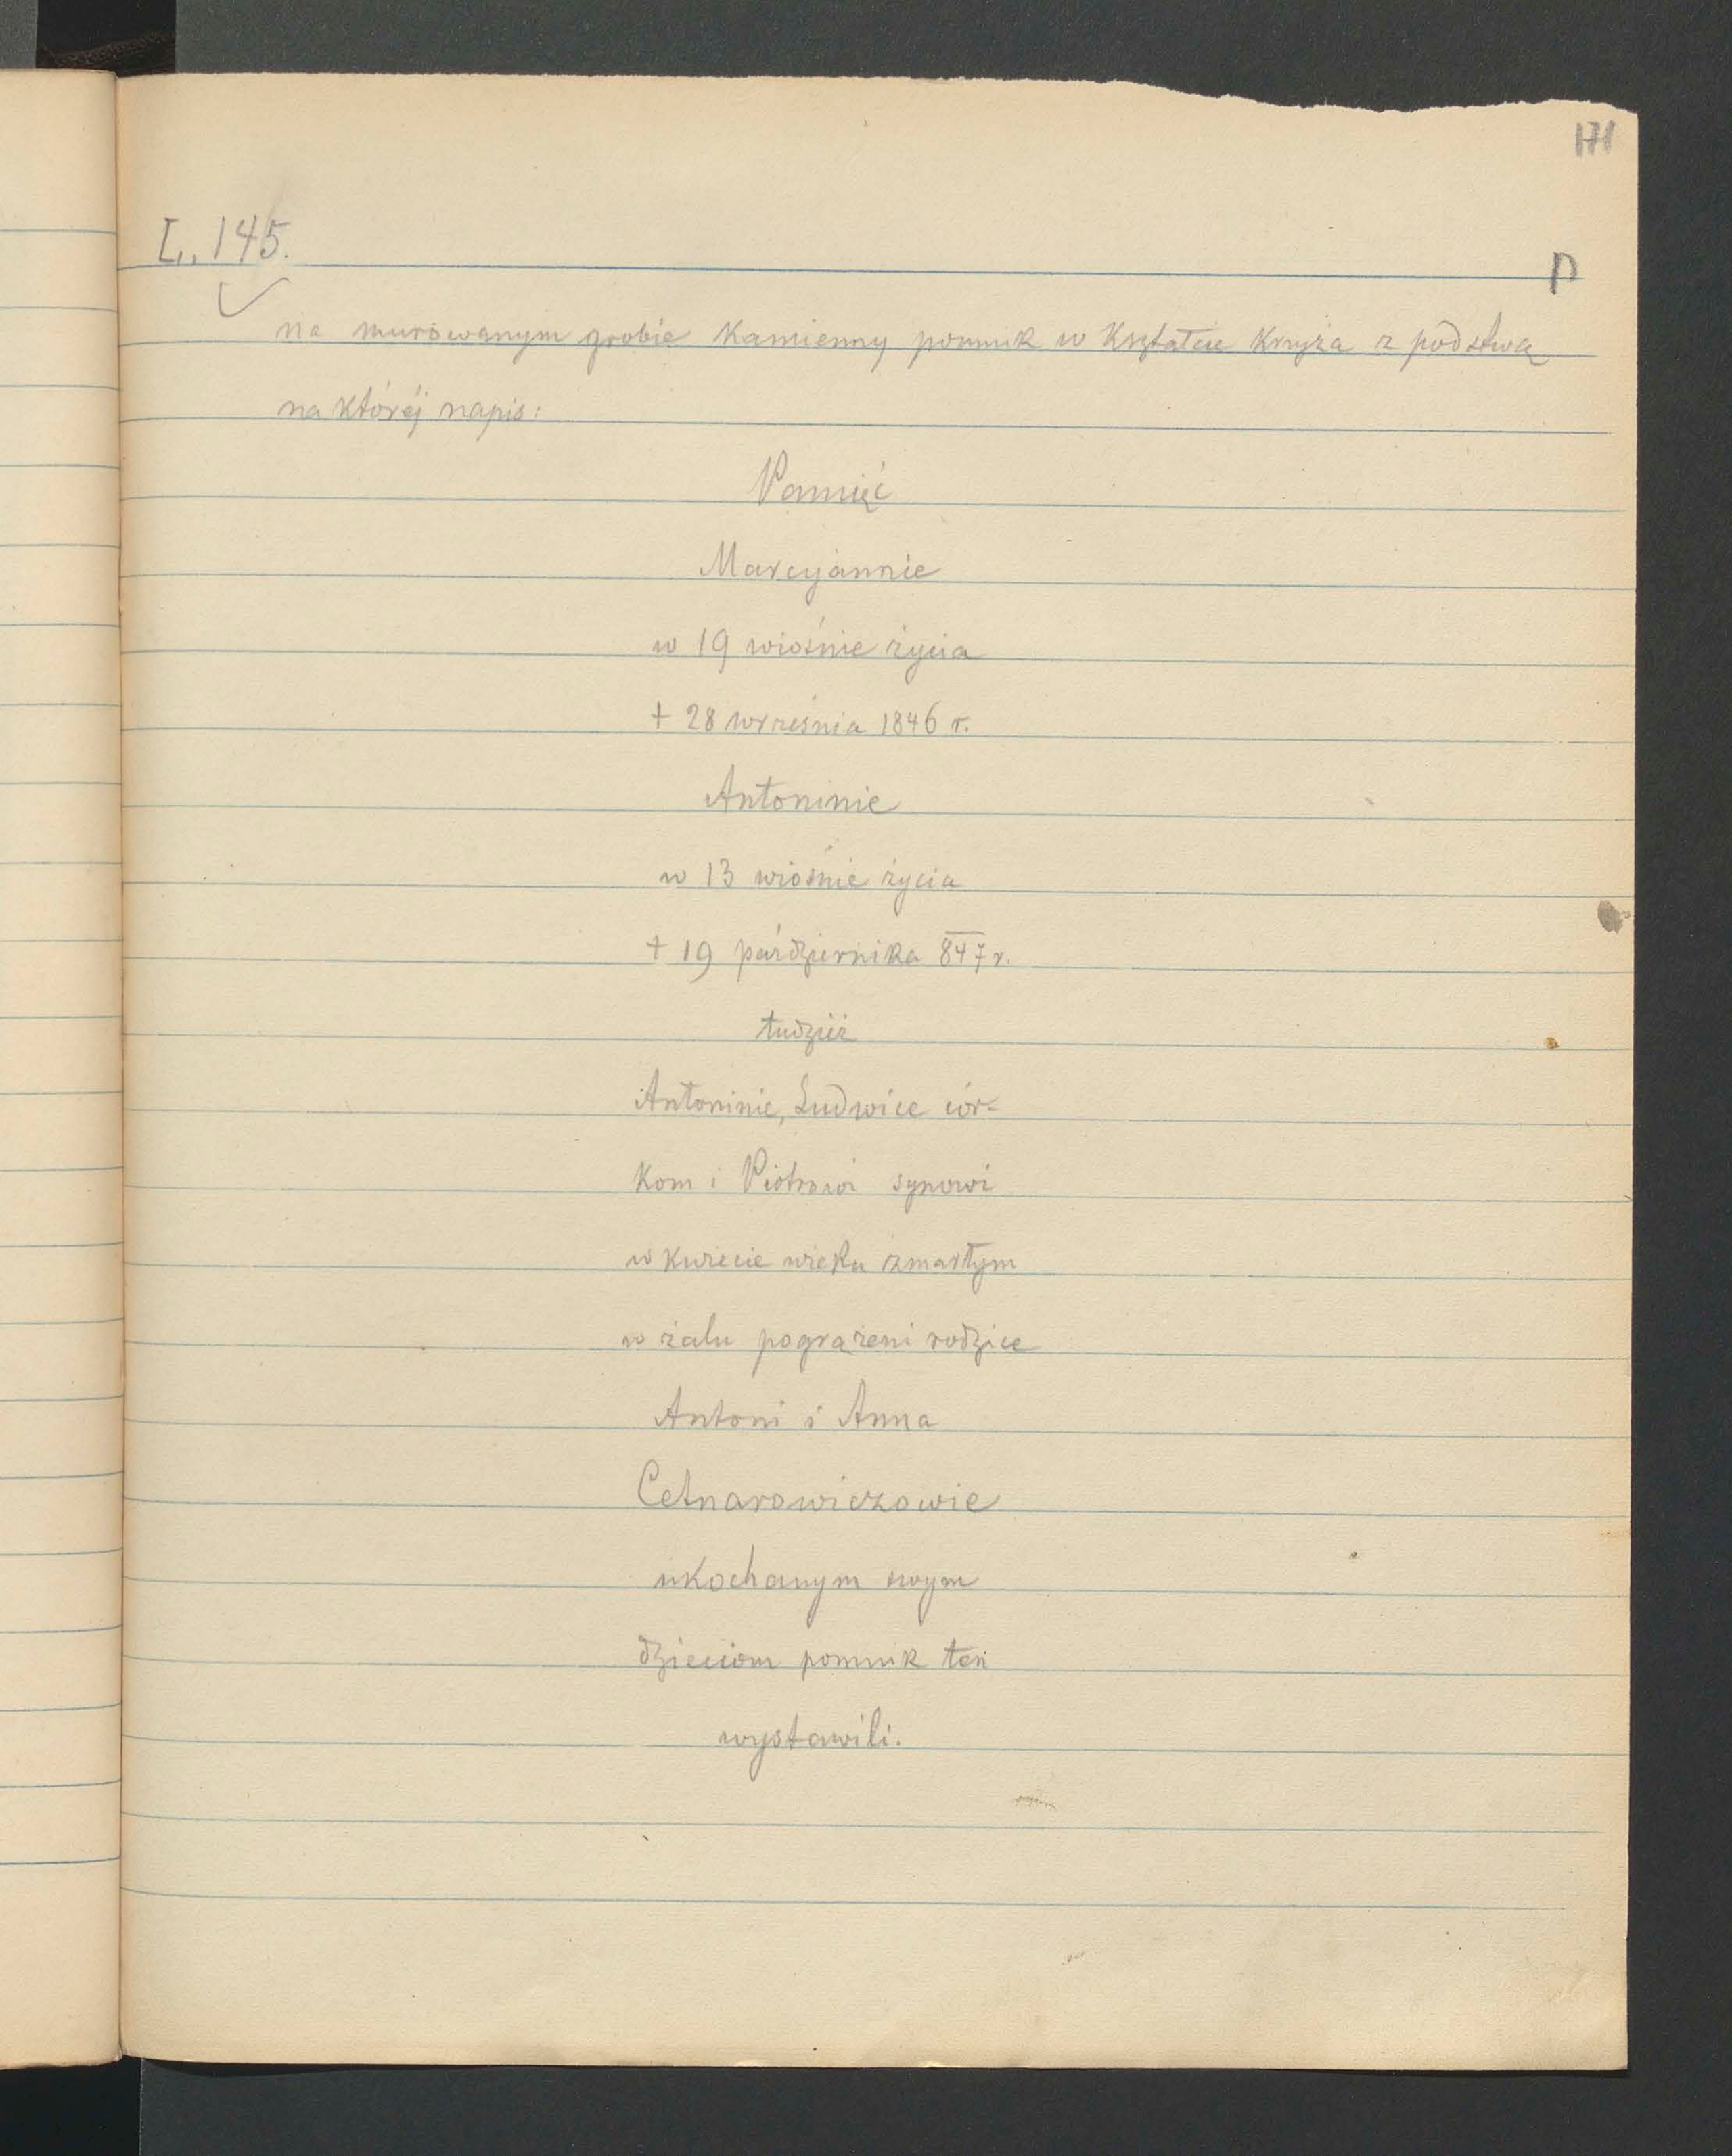 171
L. 145.
P
na murowanym grobie kamienny pomnik w kształcie krzyża z podstwą
na któréj napis:
Pamięć
Marcyjannie
w 19 wiośnie życia
+ 28 września 1846 r.
Antoninie
w 13 wiośnie życia
+ 19 października 847 r.
tudzież
Antoninie, Ludwice cór-
kom i Piotrowi synowi
w kwiecie wieku zmarłym
w żalu pogrążeni rodzice
Antoni i Anna
Cetnarowiczowie
ukochanym swym
dzieciom pomnik ten
wystawili.